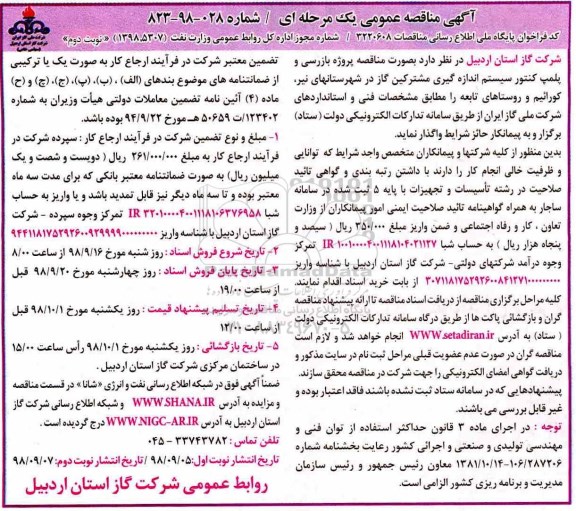 آگهی مناقصه عمومی یک مرحله ای / شماره ۰۲۸-۹۸-۸۲۳
کد فراخوان پایگاه ملی اطلاع رسانی مناقصات ۳۲۲۰۶۰۸ / شماره مجوز اداره کل روابط عمومی وزارت نفت (۱۳۹۸.۵۳۰۷) «نوبت دوم»
شرکت گاز استان اردبیل در نظر دارد بصورت مناقصه پروژه بازرسی و
پلمپ کنتور سیستم اندازه گیری مشترکین گاز در شهرستانهای نیر،
کورائیم و روستاهای تابعه را مطابق مشخصات فنی و استانداردهای
شرکت ملی گاز ایران از طریق سامانه تدارکات الکترونیکی دولت (ستاد)
برگزار و به پیمانکار حائز شرایط واگذار نماید.
بدین منظور از کلیه شرکتها و پیمانکاران متخصص واجد شرایط که توانایی
و ظرفیت خالی انجام کار را دارند با داشتن رتبه بندی و گواهی تائید
صلاحیت در رشته تأسیسات و تجهیزات با پایه ۵ ثبت شده در سامانه
ساجار به همراه گواهینامه تائید صلاحیت ایمنی امور پیمانکاران از وزارت
تعاون ، کار و رفاه اجتماعی و ضمن واریز مبلغ ۳۵۰/۰۰۰ ریال ( سیصد و
پنجاه هزار ریال ) به حساب شبا IR ۱۰۰۱۰۰۰۰۴۰۰۱۱۱۸۱۰۴۰۲۱۱۲۷ تمرکز
وجوه درآمد شرکتهای دولتی- شرکت گاز استان اردبیل با شناسه واریز
از بابت خرید اسناد اقدام نمایند.
کلیه مراحل برگزاری مناقصه از دریافت اسناد مناقصه تا ارائه پیشنهاد مناقصه
گران و بازگشائی پاکت ها از طریق درگاه سامانه تدارکات الکترونیکی دولت
( ستاد) به آدرس WWW.setadiran.ir انجام خواهد شد و لازم است
مناقصه گران در صورت عدم عضویت قبلی مراحل ثبت نام در سایت مذکور و
دریافت گواهی امضای الکترونیکی را جهت شرکت در مناقصه محقق سازند.
پیشنهادهایی که در سامانه ستاد ثبت نشده باشند فاقد اعتبار بوده و
غیر قابل بررسی می باشند.
توجه : در اجرای ماده ۳ قانون حداکثر استفاده از توان فنی و
مهندسی تولیدی و صنعتی و اجرائی کشور رعایت بخشنامه شماره
۱۰۶/۲۸۷۲۰۶-۱۳۸۱/۱۰/۱۴ معاون رئیس جمهور و رئیس سازمان
مدیریت و برنامه ریزی کشور الزامی است.
تضمین معتبر شرکت در فرآیند ارجاع کار به صورت یک یا ترکیبی
از ضمانتنامه های موضوع بندهای (الف) ، (ب)، (پ)، (ج)، (چ) و (ح)
ماده (۴) آئین نامه تضمین معاملات دولتی هیأت وزیران به شماره
۱۲۳۴۰۲/ت ۵۰۶۵۹ هـ مورخ ۹۴/۹/۲۲ بوده باشد.
۱- مبلغ و نوع تضمین شرکت در فرآیند ارجاع کار : سپرده شرکت در
فرآیند ارجاع کار به مبلغ ۲۶۱/۰۰۰/۰۰۰ ریال ( دویست و شصت و یک
میلیون ریال) به صورت ضمانتنامه معتبر بانکی که برای مدت سه ماه
معتبر بوده و تا سه ماه دیگر نیز قابل تمدید باشد و یا واریز به حساب
شبا IR ۳۲۰۱۰۰۰۰۴۰۰۱۱۱۸۱۰۶۳۷۶۹۵۸ تمرکز وجوه سپرده - شرکت
گاز استان اردبیل با شناسه واریز
۲- تاریخ شروع فروش اسناد : روز شنبه مورخ ۹۸/۹/۱۶ از ساعت ۸/۰۰
۳- تاریخ پایان فروش اسناد : روز چهارشنبه مورخ ۹۸/۹/۲۰ قبل
از ساعت ۱۹/۰۰
۴- تاریخ تسلیم پیشنهاد قیمت : روز یکشنبه مورخ ۹۸/۱۰/۱ قبل
از ساعت
۵- تاریخ بازگشائی : روز یکشنبه مورخ ۹۸/۱۰/۱ رأس ساعت ۱۵/۰۰
در ساختمان مرکزی شرکت گاز استان اردبیل
ضمناً آگهی فوق در شبکه اطلاع رسانی نفت و انرژی «شانا» در قسمت مناقصه
و مزایده به آدرس WWW.SHANA.IR و شبکه اطلاع رسانی شرکت گاز
استان اردبیل به آدرس WWW.NIGC-AR.IR درج گردیده است .
تلفن تماس : ۳۳۷۴۳۷۸۲ - ۰۴۵
تاریخ انتشار نوبت اول: ۹۸/۰۹/۰۵ / تاریخ انتشار نوبت دوم: ۹۸/۰۹/۰۷
روابط عمومی شرکت گاز استان اردبیل